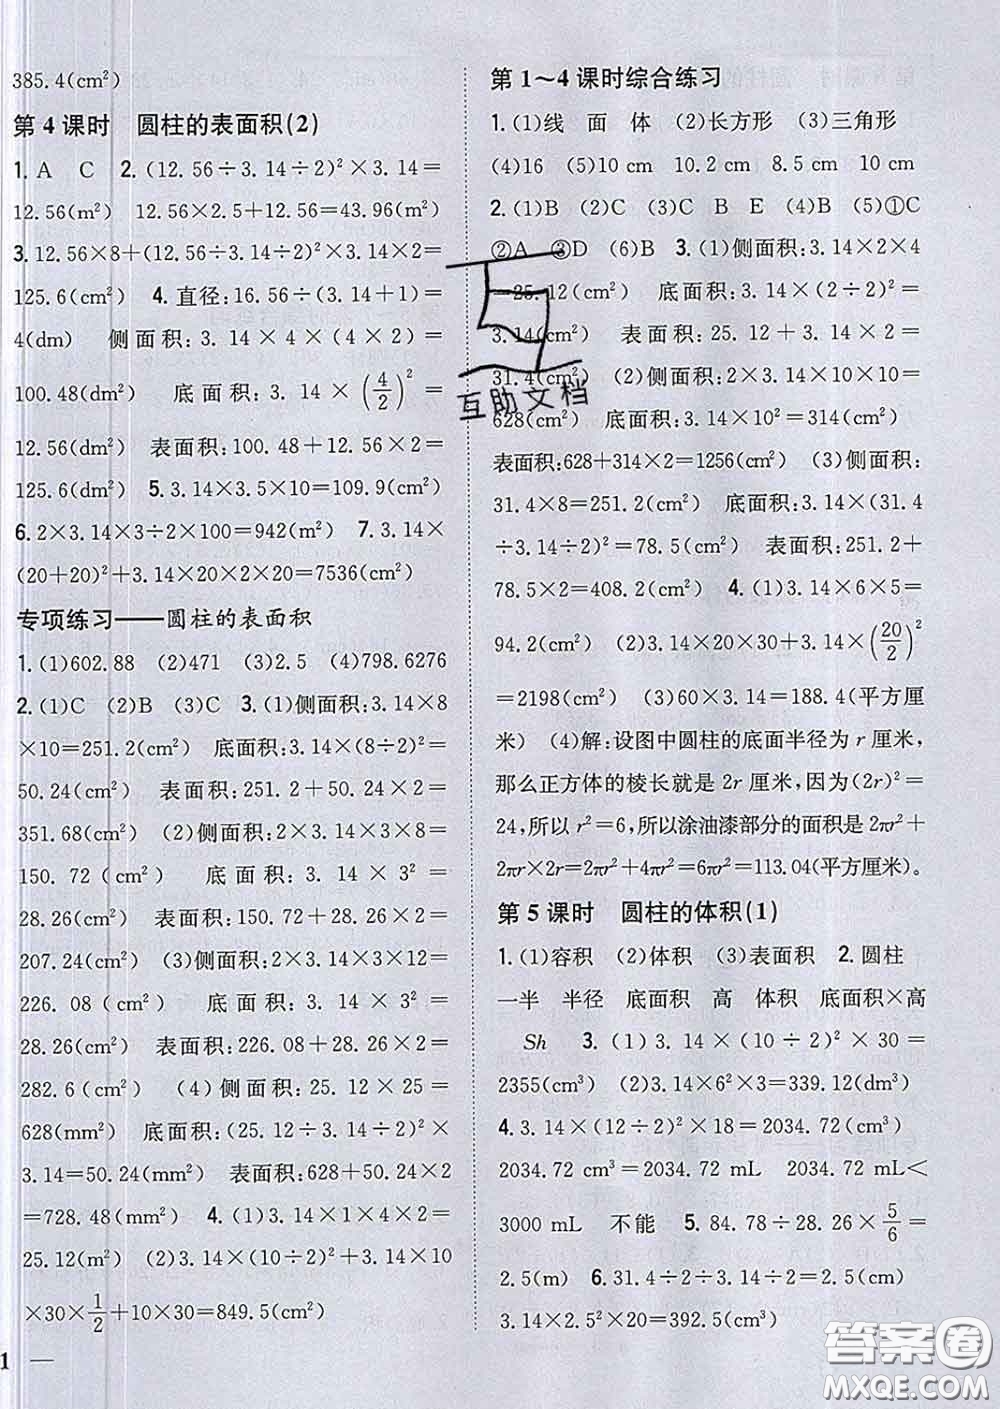 385.4(cm²)
第 4 课时　圆柱的表面积(2)
1. A　C　2. (12.56÷3.14÷2)²×3.14=
12.56(m²)　12.56×2.5+12.56=43.96(m²)
3. 12.56×8+(12.56÷3.14÷2)²×3.14×2=
125.6(cm²)　4. 直径:16.56÷(3.14+1)=
4(dm)　侧面积:3.14×4×(4×2)=
100.48(dm²)　底面积:3.14×(4/2)²=
12.56(dm²)　表面积:100.48+12.56×2=
125.6(dm²)　5. 3.14×3.5×10=109.9(cm²)
6. 2×3.14×3÷2×100=942(m²)　7. 3.14×
(20+20)²+3.14×20×2×20=7536(cm²)
专项练习——圆柱的表面积
1. (1)602.88　(2)471　(3)2.5　(4)798.6276
2. (1)C　(2)B　(3)C　3. (1)侧面积:3.14×8
×10=251.2(cm²)　底面积:3.14×(8÷2)²=
50.24(cm²)　表面积:251.2+50.24×2=
351.68(cm²)　(2)侧面积:2×3.14×3×8=
150.72(cm²)　底面积:3.14×3²=
28.26(cm²)　表面积:150.72+28.26×2=
207.24(cm²)　(3)侧面积:2×3.14×3×12=
226.08(cm²)　底面积:3.14×3²=
28.26(cm²)　表面积:226.08+28.26×2=
282.6(cm²)　(4)侧面积:25.12×25=
628(mm²)　底面积:(25.12÷3.14÷2)²×
3.14=50.24(mm²)　表面积:628+50.24×2
=728.48(mm²)　4. (1)3.14×1×4×2=
25.12(m)　(2)3.14×(10÷2)²+3.14×10
×30×1/2+10×30=849.5(cm²)
1 —
第 1～4 课时综合练习
1. (1)线　面　体　(2)长方形　(3)三角形
(4)16　(5)10 cm　10.2 cm　8.5 cm　10 cm
2. (1)B　(2)C　(3)C　B　E　(4)B　(5)①C
②A　③D　(6)B　3. (1)侧面积:3.14×2×4
=25.12(cm²)　底面积:3.14×(2÷2)²=
3.14(cm²)　表面积:25.12+3.14×2=
31.4(cm²)　(2)侧面积:2×3.14×10×10=
628(cm²)　底面积:3.14×10²=314(cm²)
表面积:628+314×2=1256(cm²)　(3)侧面积:
31.4×8=251.2(cm²)　底面积:3.14×(31.4
÷3.14÷2)²=78.5(cm²)　表面积:251.2+
78.5×2=408.2(cm²)　4. (1)3.14×6×5=
94.2(cm²)　(2)3.14×20×30+3.14×(20/2)²
=2198(cm²)　(3)60×3.14=188.4(平方厘
米)　(4)解:设图中圆柱的底面半径为 r 厘米,
那么正方体的棱长就是 2r 厘米,因为(2r)²=
24,所以 r²=6,所以涂油漆部分的面积是 2πr²+
2πr×2r=2πr²+4πr²=6πr²=113.04(平方厘米)。
第 5 课时　圆柱的体积(1)
1. (1)容积　(2)体积　(3)表面积　2. 圆柱
一半　半径　底面积　高　体积　底面积×高
Sh　3. (1)3.14×(10÷2)²×30=
2355(cm³)　(2)3.14×6²×3=339.12(dm³)
4. 3.14×(12÷2)²×18=2034.72(cm³)
2034.72 cm³=2034.72 mL　2034.72 mL<
3000 mL　不能　5. 84.78÷28.26×5/6=
2.5(m)　6. 31.4÷2÷3.14÷2=2.5(cm)
3.14×2.5²×20=392.5(cm³)
互助文档
答案圈
MXQE.COM